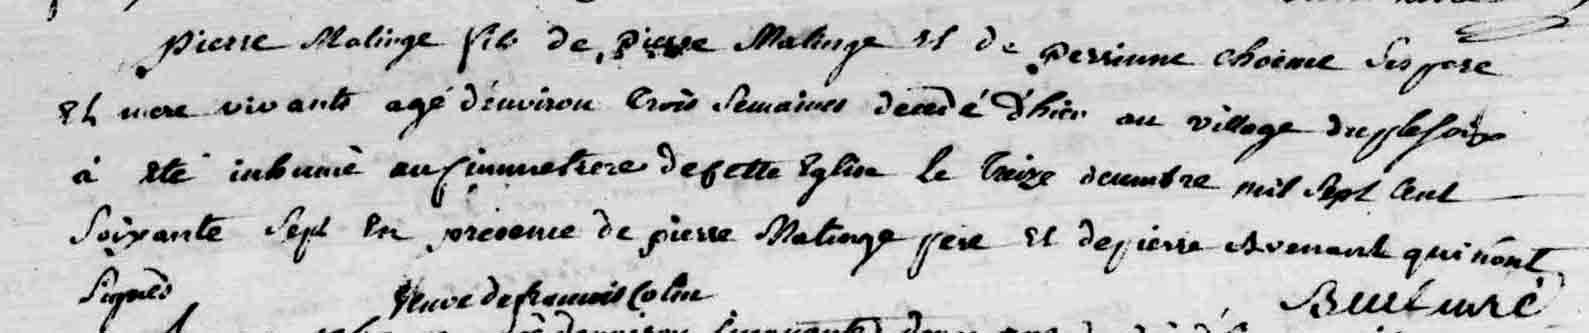 pierre Malinge fils de pierre Malinge et de perrinne choisne Ses pere
Et mere vivants agé d'environ trois Semaines decedé d'hier au village du plessois
à eté inhumé au Cimmetiere de Cette Eglise le treize decembre mil Sept Cent
Soixante Sept En présence de pierre Malinge pere Et de pierre qui n'ont
Signés veuve de francois Colin